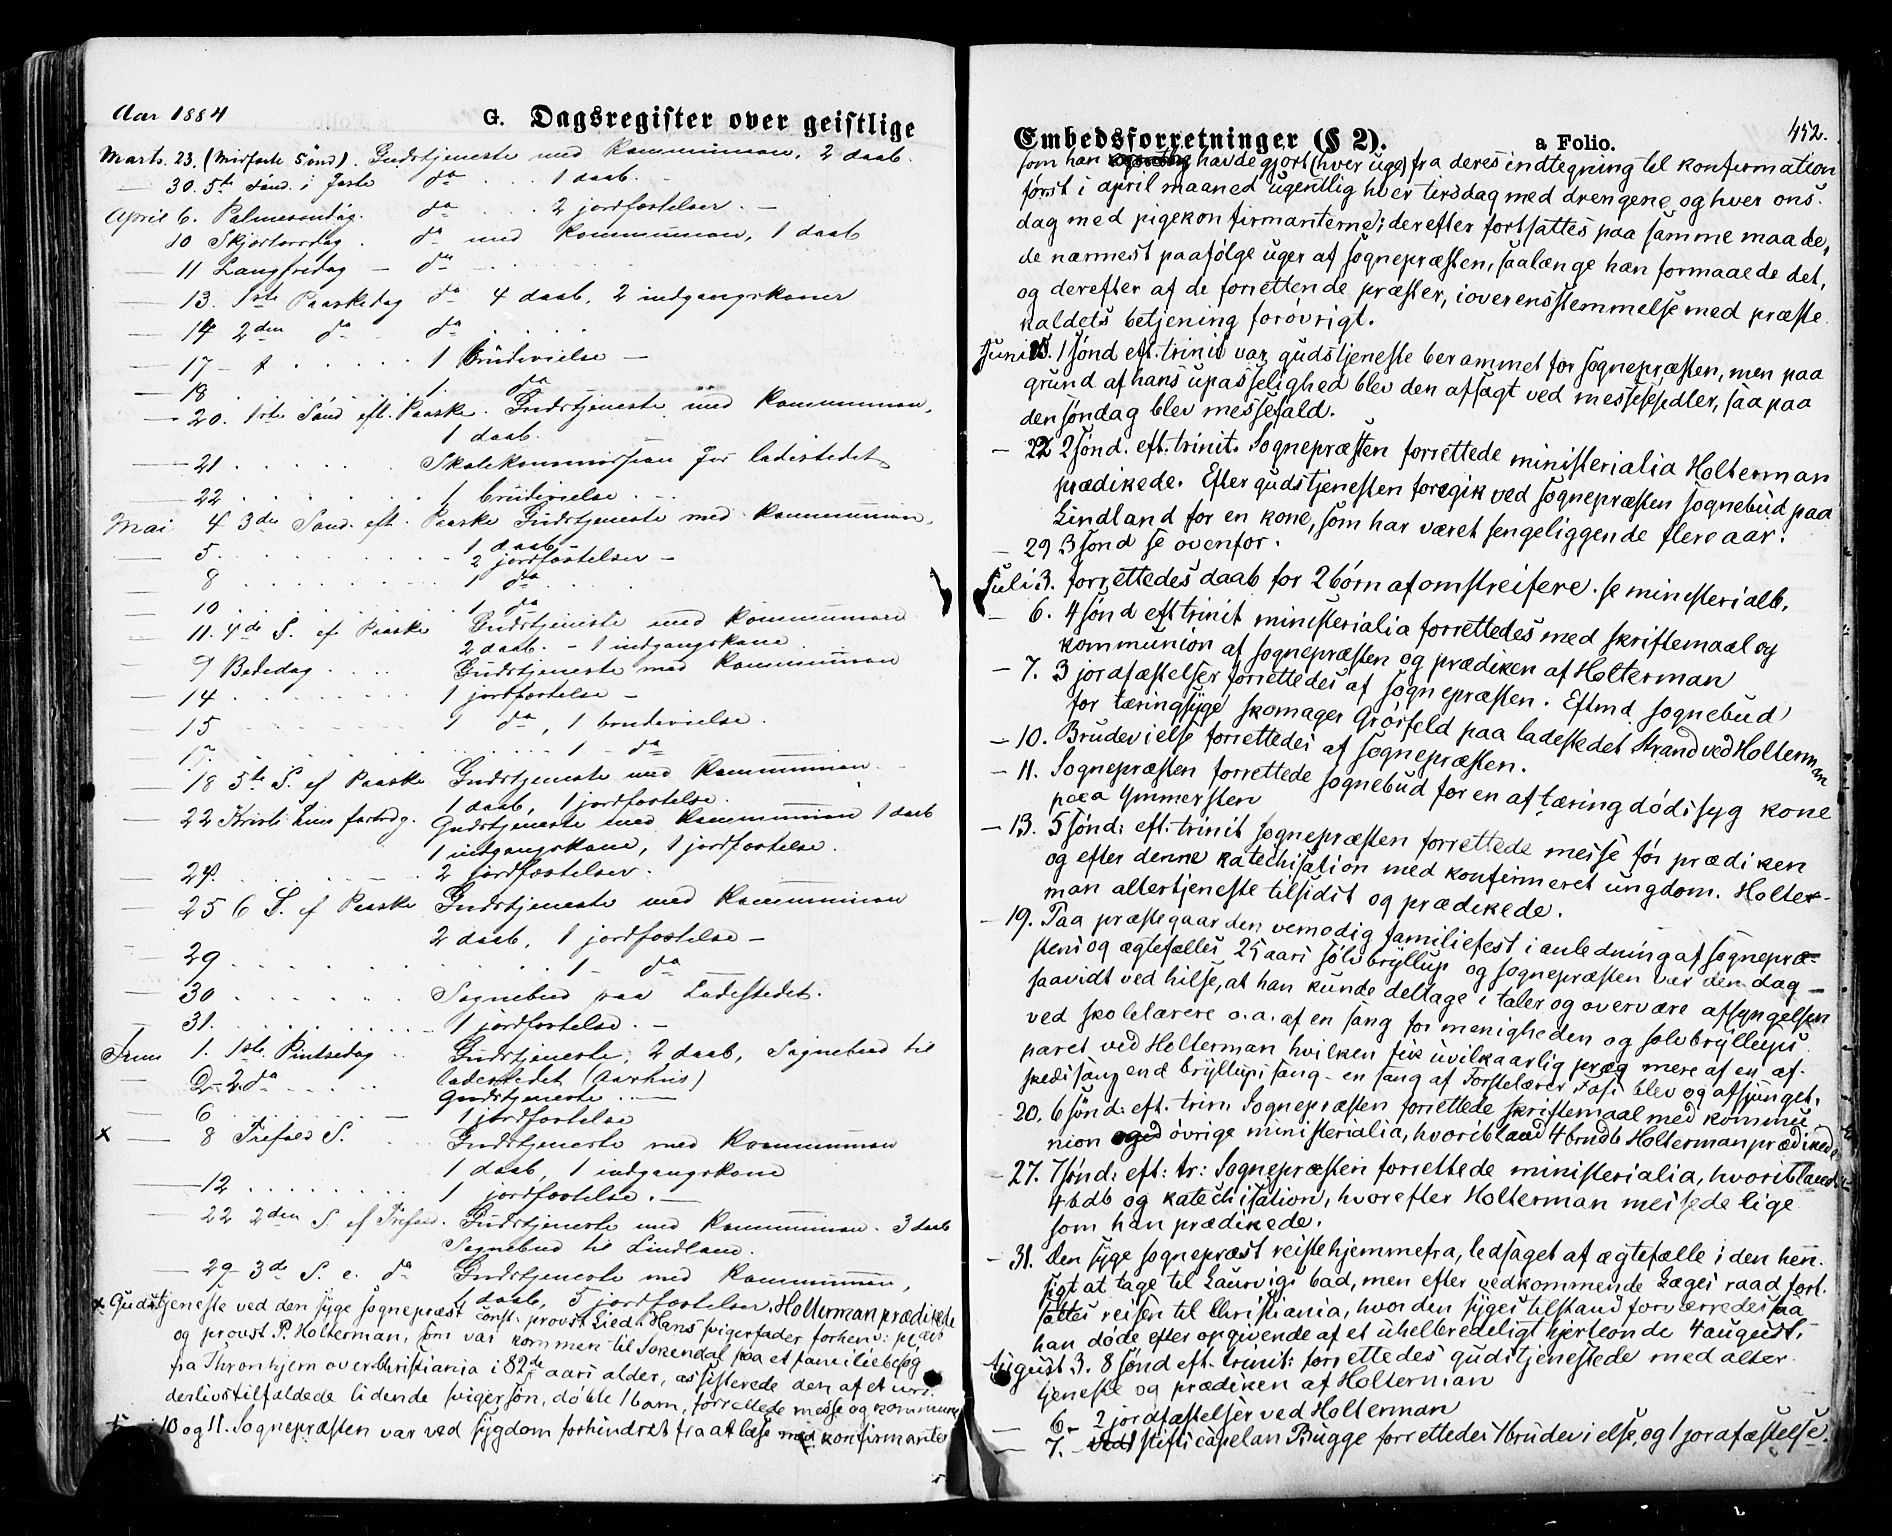 Aar 1884
G. Dagsregister over geistlige
Marts. 23. (Midfaste Sönd). Gudstjeneste med Kommunion, 2 daab.
— 30. 5te Sönd. i Faste da . . . 1 daab. -
April 6. Palmesöndag. da . . . 2 jordfæstelser. -
10 Skjærtorsdag . da med Kommunion, 1 daab
— 11 Langfredag - da
— 13. 1ste Paaskedag da 4 daab, 2 indgangskoner
— 14 2den da - da
— 17 1 Brudevielse -
— 18 1. da
— 20. 1ste Sönd eft. Paaske. Gudstjeneste med Kommunion,
1 daab.
— 21 . . . . . Skolekommission for ladestedet
— 22 . . . . . 1 brudevielse . -
Mai 4 3die Sönd. eft. Paaske Gudstjeneste med Kommunion,
1 daab -
— 5. . . . . . 2 jordfæstelser -
— 8 . . . . . 1 da
— 10 . . . . . 1 da
— 11. 4de S. ef Paaske Gudstjeneste med Kommunion
2 daab. - 1 indgangskone
9 Bededag . . . . Gudstjeneste med Kommunion
— 14 . . . . . 1 jordfæstelse -
— 15 . . . . . 1 da, 1 brudevielse.
— 17. . . . . . 1 - da
— 18 5te S. ef Paaske Gudstjeneste med Kommunion
1 daab, 1 jordfæstelse.
— 22 Kristi himfartsdg. Gudstjeneste med Kommunion 1 daab
1 indgangskone, 1 jordfæstelse.
— 24. . . . . . 2 jordfæstelser.
— 25 6 S. ef Paaske Gudstjeneste med Kommunion
2 daab, 1 jordfæstelse -
— 29 . . . . . 1 - da
— 30 . . . . . Sognebud paa Ladestedet.
— 31. . . . . . 1 jordfæstelse. -
Juni 1. 1ste Pintsedag . . Gudstjeneste, 2 daab, Sognebud til
ladestedet (Aarhus)
2. 2. da . . . . Gudstjeneste . . .
— 6 . . . . . 1 jordfæstelse
x — 8 Trefold S. Gudstjeneste med Kommunion
1 daab, 1 indgangskone
— 12 . . . . . 1 jordfæstelse. -
— 22 2den S. ef Trefold. Gudstjeneste med Kommunion. 3 daab
Sognebud til Lindland.
— 29 3de S. e. da Gudstjeneste med Kommunion,
1 daab, 5 jordfæstelser, Holterman prædikede
x Gudstjeneste ved den syge sognepræst const. provst Lied. Hans svigerfader forhenv:
og provst P. Holterman, som var kommen til Sokendal paa et familiebesøg
fra Thronhjem over Christiania i 82de aars alder, assisterede den af et un-
derlivstilfældede lidende svigersøn, døbte 1 barn, forrettede messe og kommunion
10 og 11. Sognepræsten var ved sygdom forhindret fra at læse med konfirmanter
Embedsforretninger (§ 2).
a Folio.
452.
som han havde gjort (hver uge) fra deres indtegning til konfirmation
først i april maaned ugentlig hver tirsdag med drengene og hver ons-
dag med pigekonfirmanterne; derefter fortsattes paa samme maade,
de nærmest paafølge uger af sognepræsten, saalænge han formaaede det,
og derefter af de forrettende præster, i overensstemmelse med præste
kaldets betjening forøvrigt.
Juni 15. 1 sønd eft. trinit var gudstjeneste berammet for sognepræsten, men paa
grund af hans upasselighed blev den afsagt ved messesedler, saa paa
den søndag blev messefald.
— 22 2 sønd. eft. trinit. Sognepræsten forrettede ministerialia Holterman
prædikede. Efter gudstjenesten foregik ved sognepræsten sognebud paa
Lindland for en kone, som har været sengeliggende flere aar.
— 29 3 sønd se ovenfor.
Juli 3. forrettedes daab for 2 børn af omstreifere. se ministerialb.
— 6. 4 sønd eft trinit ministerialia forrettedes med skriftemaal og
kommunion af sognepræsten og prædiken af Holterman
— 7. 3 jordfæstelser forrettedes af sognepræsten. Eftmd sognebud
for tæringssyge skomager Grösfeld paa ladestedet Strand ved Holterman
— 10. Brudevielse forrettedes af sognepræsten.
— 11. Sognepræsten forrettede sognebud for en af tæring dødssyg kone
paa Ymmersten
— 13. 5 sønd: eft: trinit sognepræsten forrettede messe før prædiken
og efter denne katechisation med konfirmeret ungdom. Holter-
man altertjeneste tilsidst og prædikede.
— 19. Paa præstegaarden vemodig familiefest i anledning af sognepræ-
stens og ægtefælles 25 aars sølvbryllup og sognepræsten var den dag
saavidt ved hilse, at han kunde deltage i taler og overvære afsyngelsen
ved skolelærere o. a. af en sang for menigheden og solvbryllups
paret ved Holterman hvilken fik uvilkaarlig præg mere af en af-
skedssang end bryllups sang - en sang af Forstelærer Fosi blev og afsjunget.
20. 6 sønd: eft. trin. Sognepræsten forrettede skriftemaal med kommu
nion øvrige ministerialia, hvoriblaad 4 brndb Holterman prædikede
— 27. 7 sønd: eft: tr: Sognepræsten forrettede ministerialia, hvoriblaad
4 bdb og katechisation, hvorefter Holterman messede lige
som han prædikede.
— 31. Den syge sognepræst reiste hjemmefra, ledsaget af ægtefælle i den hen-
sigt at tage til Laurvigs bad, men efter vedkommende Læges raad fort-
sattes reisen til Christiania, hvor den syges tilstand forværredes saa
han døde efter opgivende af et uhelbredeligt hjerteonde 4 august.
August 3. 8 sønd eft. trinit: forrettedes gudstjenestede med alter
tjeneste og prædiken af Holterman
— 6 - 2 jordfæstelser ved Holterman
— 7. - ved stiftscapelan Bugge forrettedes 1 brudevielse, og 1 jordfæstelse.